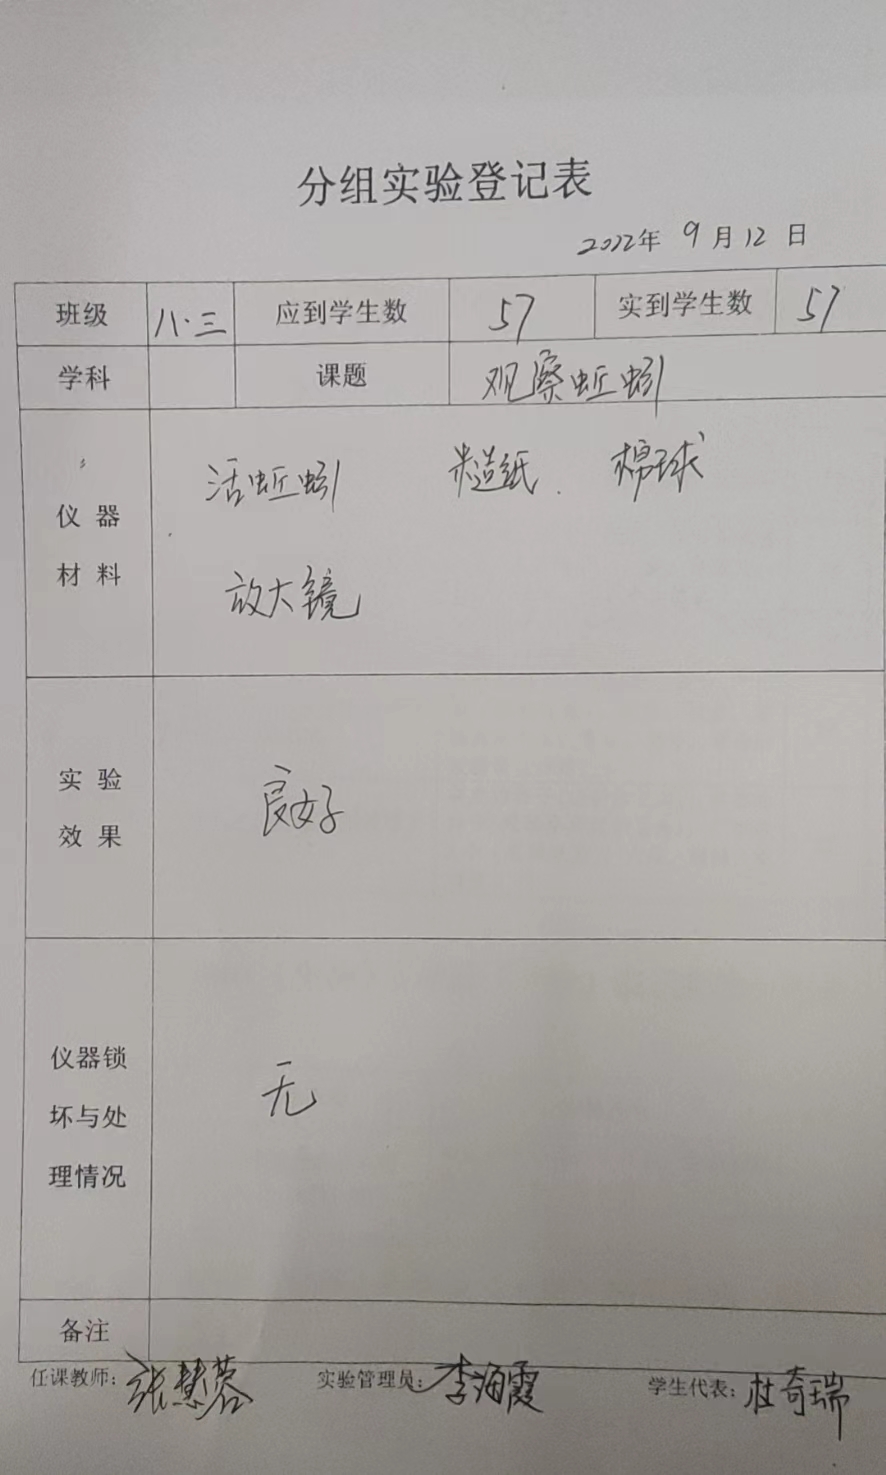 分组实验登记表
2022年 9月12日
班级 八.三 应到学生数 57 实到学生数 57
学科 课题 观察蚯蚓
活蚯蚓 糙纸 棉球
仪器
材料
放大镜
实验
效果
良好
仪器锁
坏与处
理情况
无
备注
任课教师: 张慧蓉 实验管理员: 李海霞 学生代表: 杜奇瑞